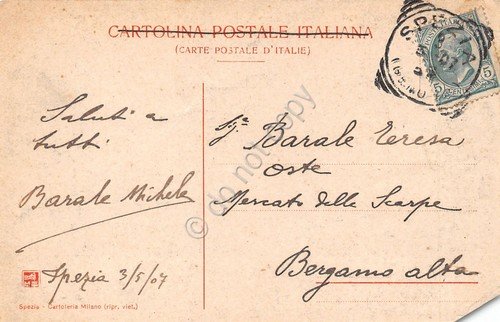 CARTOLINA POSTALE ITALIANA
(CARTE POSTALE D'ITALIE)
5
Saluti a
tutti
Barale Michele
Spezia 3/5/07
Sig.ª Barale Teresa
Oste
Mercato delle Scarpe
Bergamo alta
Spezia - Cartoleria Milano (ripr. viet.)
© do not copy